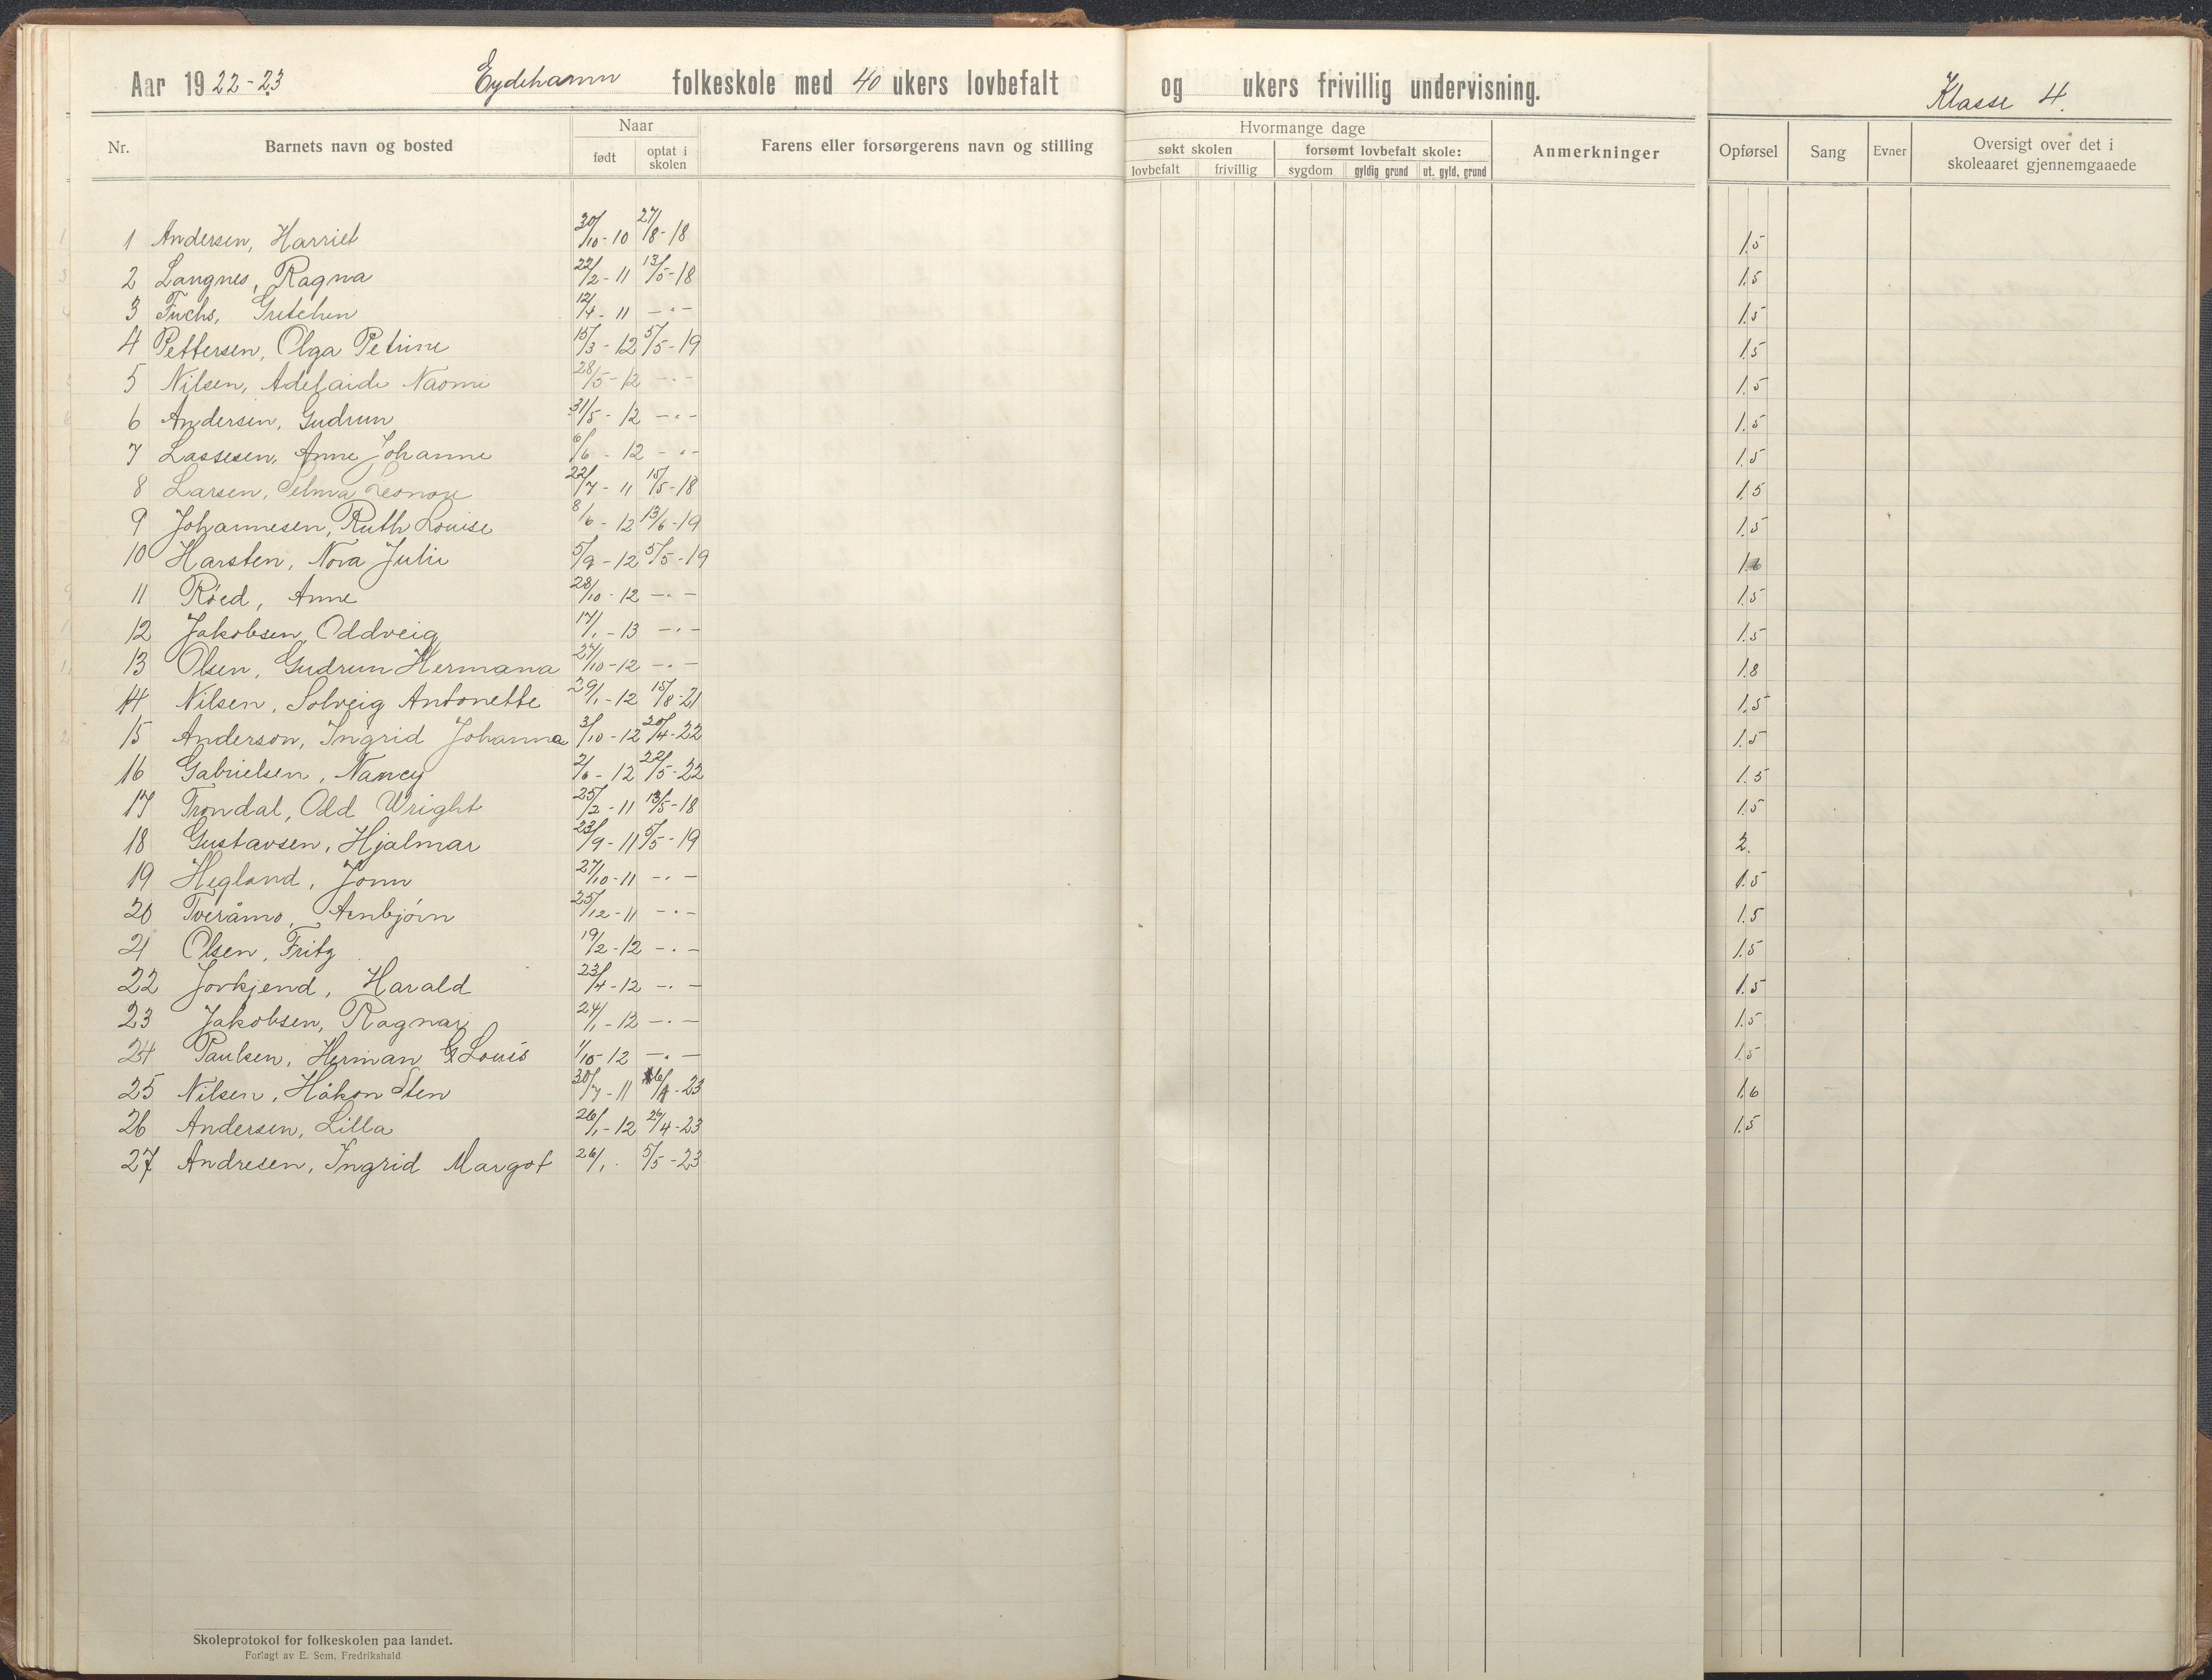 Aar 1922-23 Eydehamn folkeskole med 40 ukers lovbefalt og ukers frivillig undervisning. Klasse 4.
Nr. Barnets navn og bosted Naar født optat i skolen Farens eller forsørgerens navn og stilling Hvormange dage søkt skolen lovbefalt frivillig forsømt lovbefalt skole: sygdom gyldig grund ut. gyld. grund Anmerkninger Opførsel Sang Evner Oversigt over det i skoleaaret gjennemgaaede
1 Andersen, Harriet 30/10-10 27/8-18 1.5
2 Langnes, Ragna 22/2-11 13/5-18 1.5
3 Fuchs, Gretchen 12/4-11 -"- 1.5
4 Pettersen, Olga Petrine 15/3-12 5/5-19 1.5
5 Nilsen, Adelaide Naomi 28/5-12 -"- 1.5
6 Andersen, Gudrun 31/5-12 -"- 1.5
7 Lassesen, Anne Johanne 6/6-12 -"- 1.5
8 Larsen, Selma Leonore 22/7-11 15/5-18 1.5
9 Johannesen, Ruth Louise 8/6-12 13/6-19 1.5
10 Harsten, Nora Julie 5/9-12 5/5-19 1.6
11 Røed, Anne 28/10-12 -"- 1.5
12 Jakobsen, Oddveig 17/1-13 -"- 1.5
13 Olsen, Gudrun Hermana 27/10-12 -"- 1.8
14 Nilsen, Solveig Antonette 29/1-12 15/8-21 1.5
15 Anderson, Ingrid Johanna 3/10-12 20/4-22 1.5
16 Gabrielsen, Nancy 2/6-12 22/5-22 1.5
17 Trondal, Odd Wright 25/2-11 13/5-18 1.5
18 Gustavsen, Hjalmar 23/9-11 5/5-19 2.
19 Hegland, Jonn 27/10-11 -"- 1.5
20 Tveråmo, Arnbjørn 25/12-11 -"- 1.5
21 Olsen, Fritz 19/2-12 -"- 1.5
22 Jovkjend, Harald 23/4-12 -"- 1.5
23 Jakobsen, Ragnar 24/1-12 -"- 1.5
24 Paulsen, Herman G Louis 1/10-12 -"- 1.5
25 Nilsen, Håkon Sten 30/7-11 -23 1.6
26 Andersen, Lilla 26/1-12 26/4-23 1.5
27 Andresen, Ingrid Margot 26/1. 5/5-23
Skoleprotokol for folkeskolen paa landet.
Forlagt av E. Sem, Fredrikshald